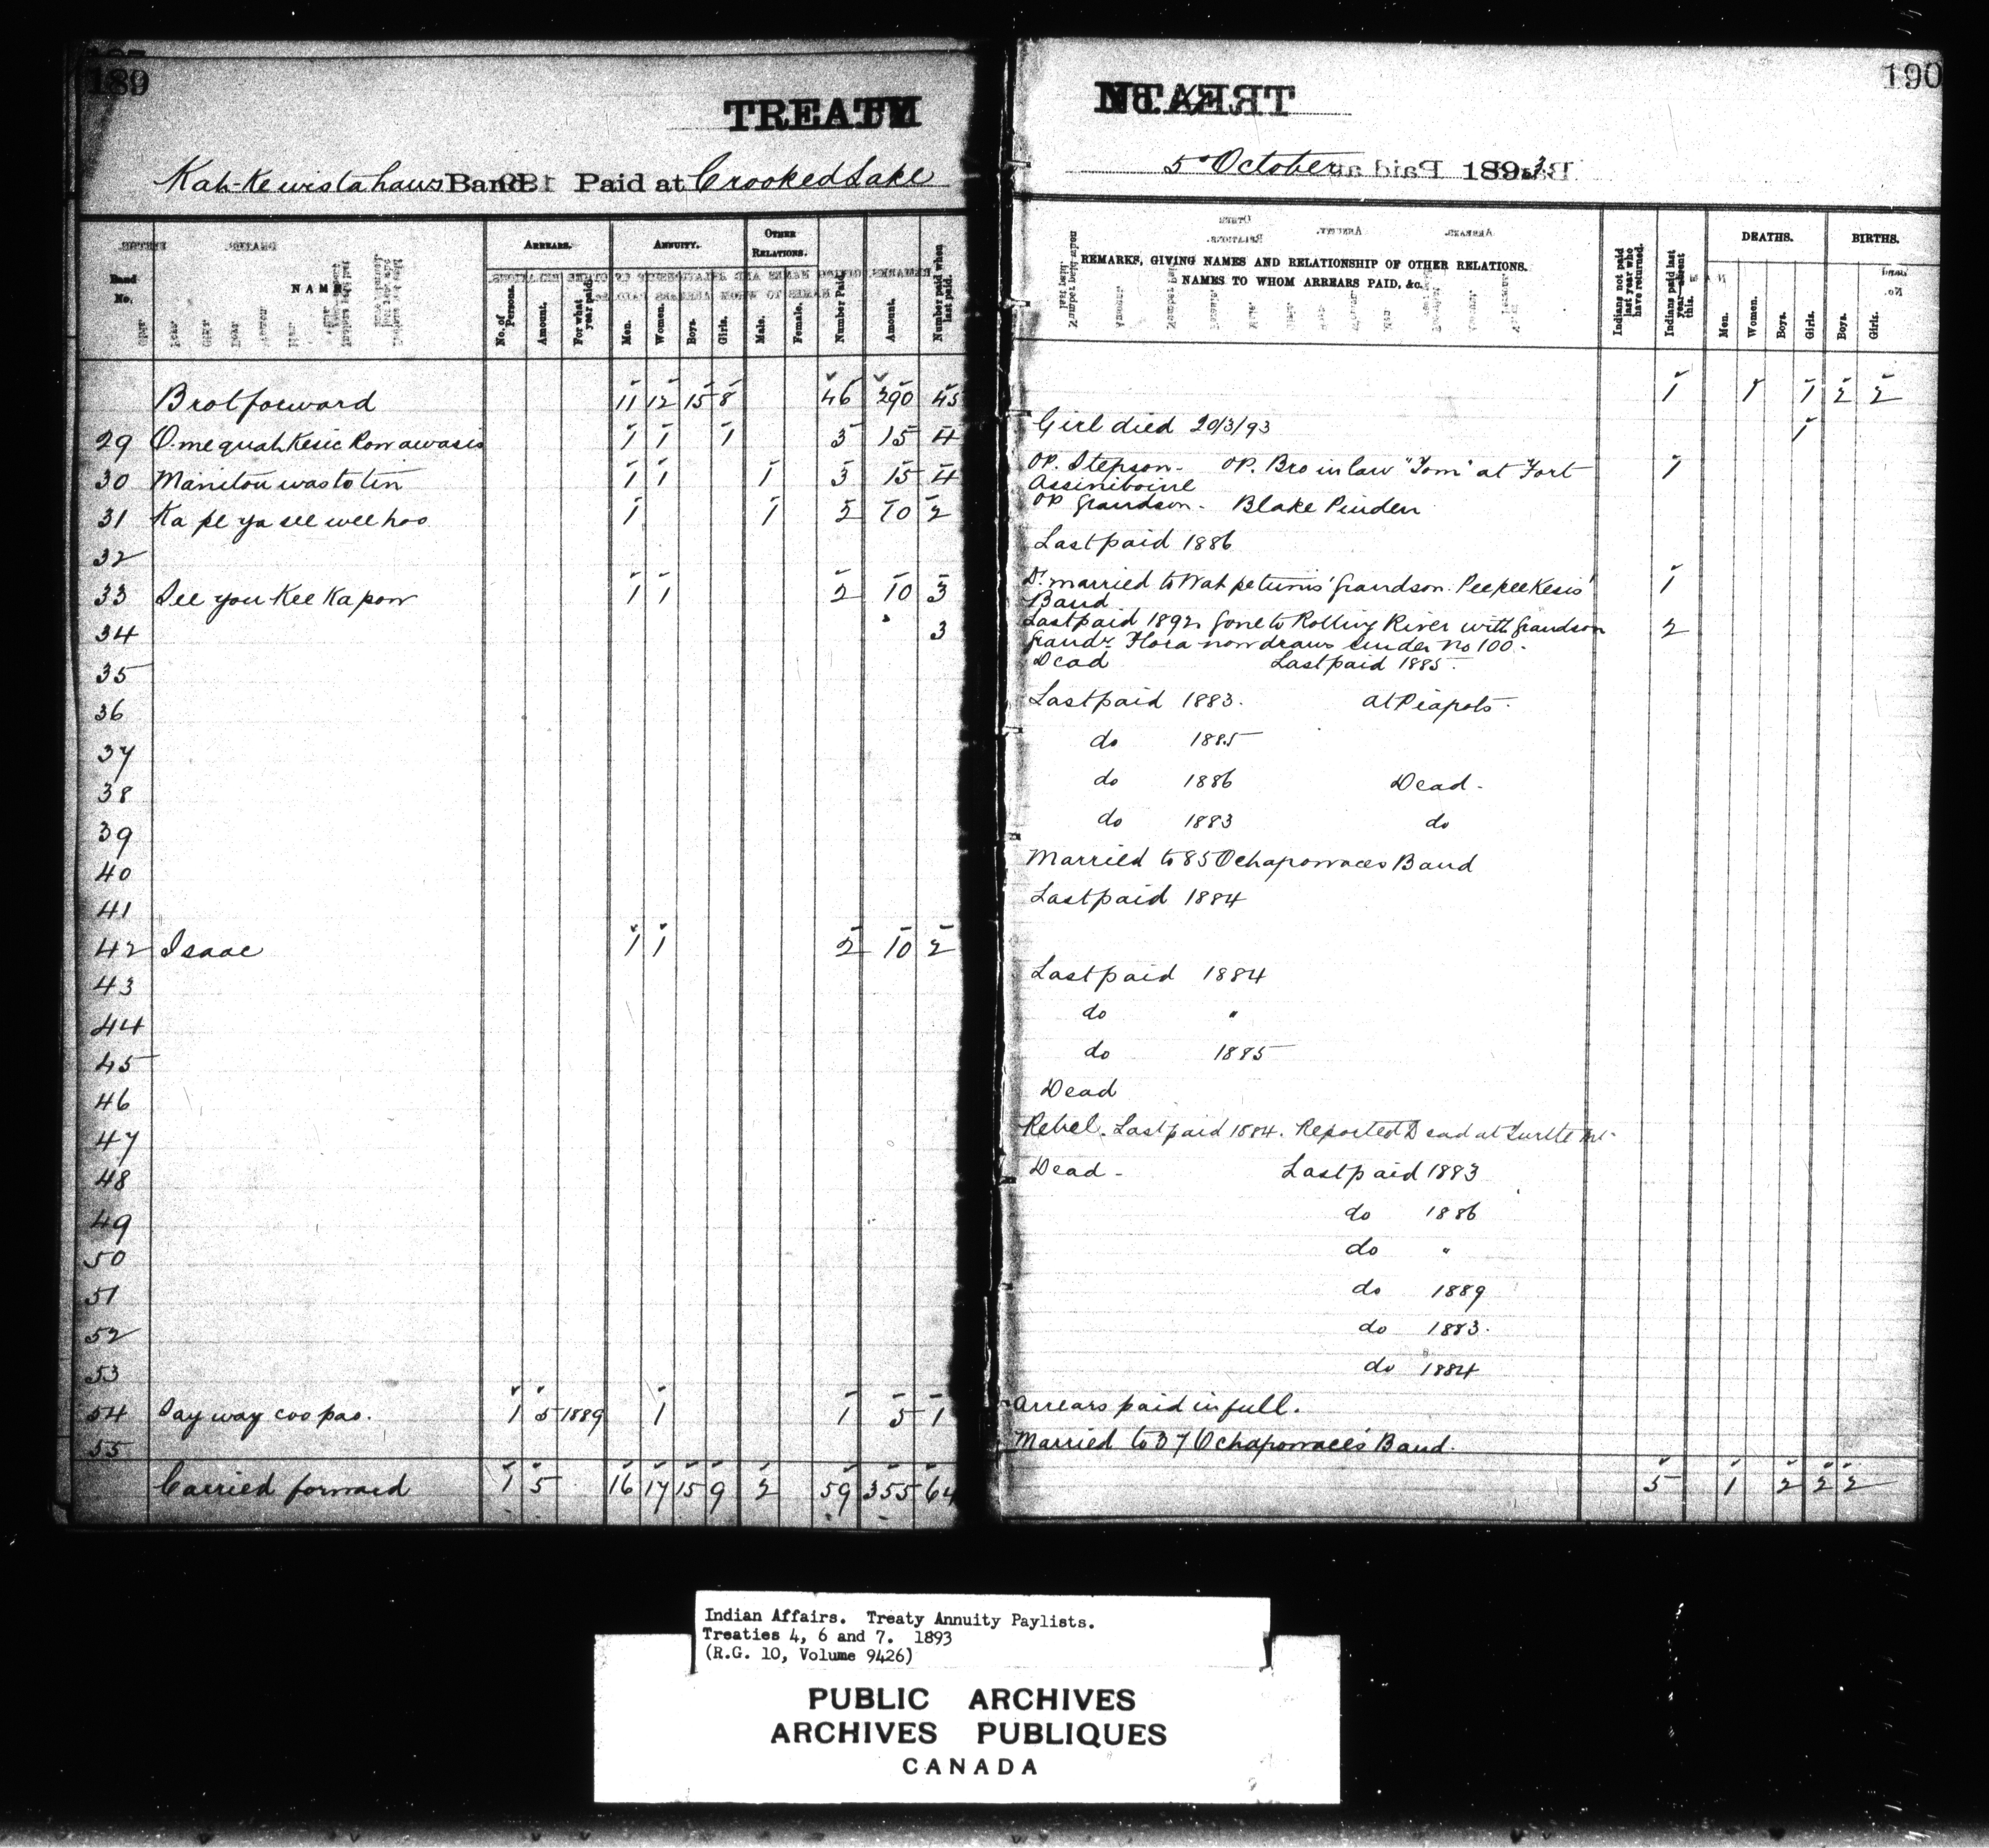 189
TREATY
Kah-Kewistahaws Band Paid at Crooked Lake
Band No.
NAME
ARREARS.
No. of Persons.
Amount.
For what year paid.
ANNUITY.
Men.
Women.
Boys.
Girls.
OTHER RELATIONS.
Male.
Female.
Number Paid.
Amount.
Number paid when last paid.
Brot forward 11 12 15 8 46 290 45
29 O.mequahKesic Kowawasis 1 1 1 3 15 4
30 Manitou wastotin 1 1 1 3 15 4
31 Ka pe ya see wee hoo 1 1 2 10 2
32
33 See you Kee Kapow 1 1 2 10 3
34 3
35
36
37
38
39
40
41
42 Isaac 1 1 2 10 2
43
44
45
46
47
48
49
50
51
52
53
54 Say way coo pao. 1 5 1889 1 1 5 1
55
Carried forward 1 5 16 17 15 9 2 59 355 64
190
5 October 1893
REMARKS, GIVING NAMES AND RELATIONSHIP OF OTHER RELATIONS.
NAMES TO WHOM ARREARS PAID, &c.
Indians not paid last year who have returned.
Indians paid last year absent this.
DEATHS.
Men.
Women.
Boys.
Girls.
BIRTHS.
Boys.
Girls.
1 1 1 2 2
Girl died 20/3/93 1
OP. Stepson - OP. Bro in law "Tom" at Fort 1
Assiniboine
OP Grandson - Blake Pinden
Last paid 1886
Dr. married to Wahpetunis' Grandson. PeepeeKesis' 1
Band
Last paid 1892. Gone to Rolling River with Grandson 2
Grandr. Flora now draws under No 100.
Dead Last paid 1885.
Last paid 1883. at Piapots.
do 1885
do 1886 Dead.
do 1883 do
Married to 85 Ochapowaces Band
Last paid 1884
Last paid 1884
do "
do 1885
Dead
Rebel. Last paid 1884. Reported Dead at Turtle Mt.
Dead - Last paid 1883
do 1886
do "
do 1889
do 1883.
do 1884
Arrears paid in full.
Married to 37 Ochapowace's Band.
5 1 2 2 2
Indian Affairs. Treaty Annuity Paylists.
Treaties 4, 6 and 7. 1893
(R.G. 10, Volume 9426)
PUBLIC ARCHIVES
ARCHIVES PUBLIQUES
CANADA